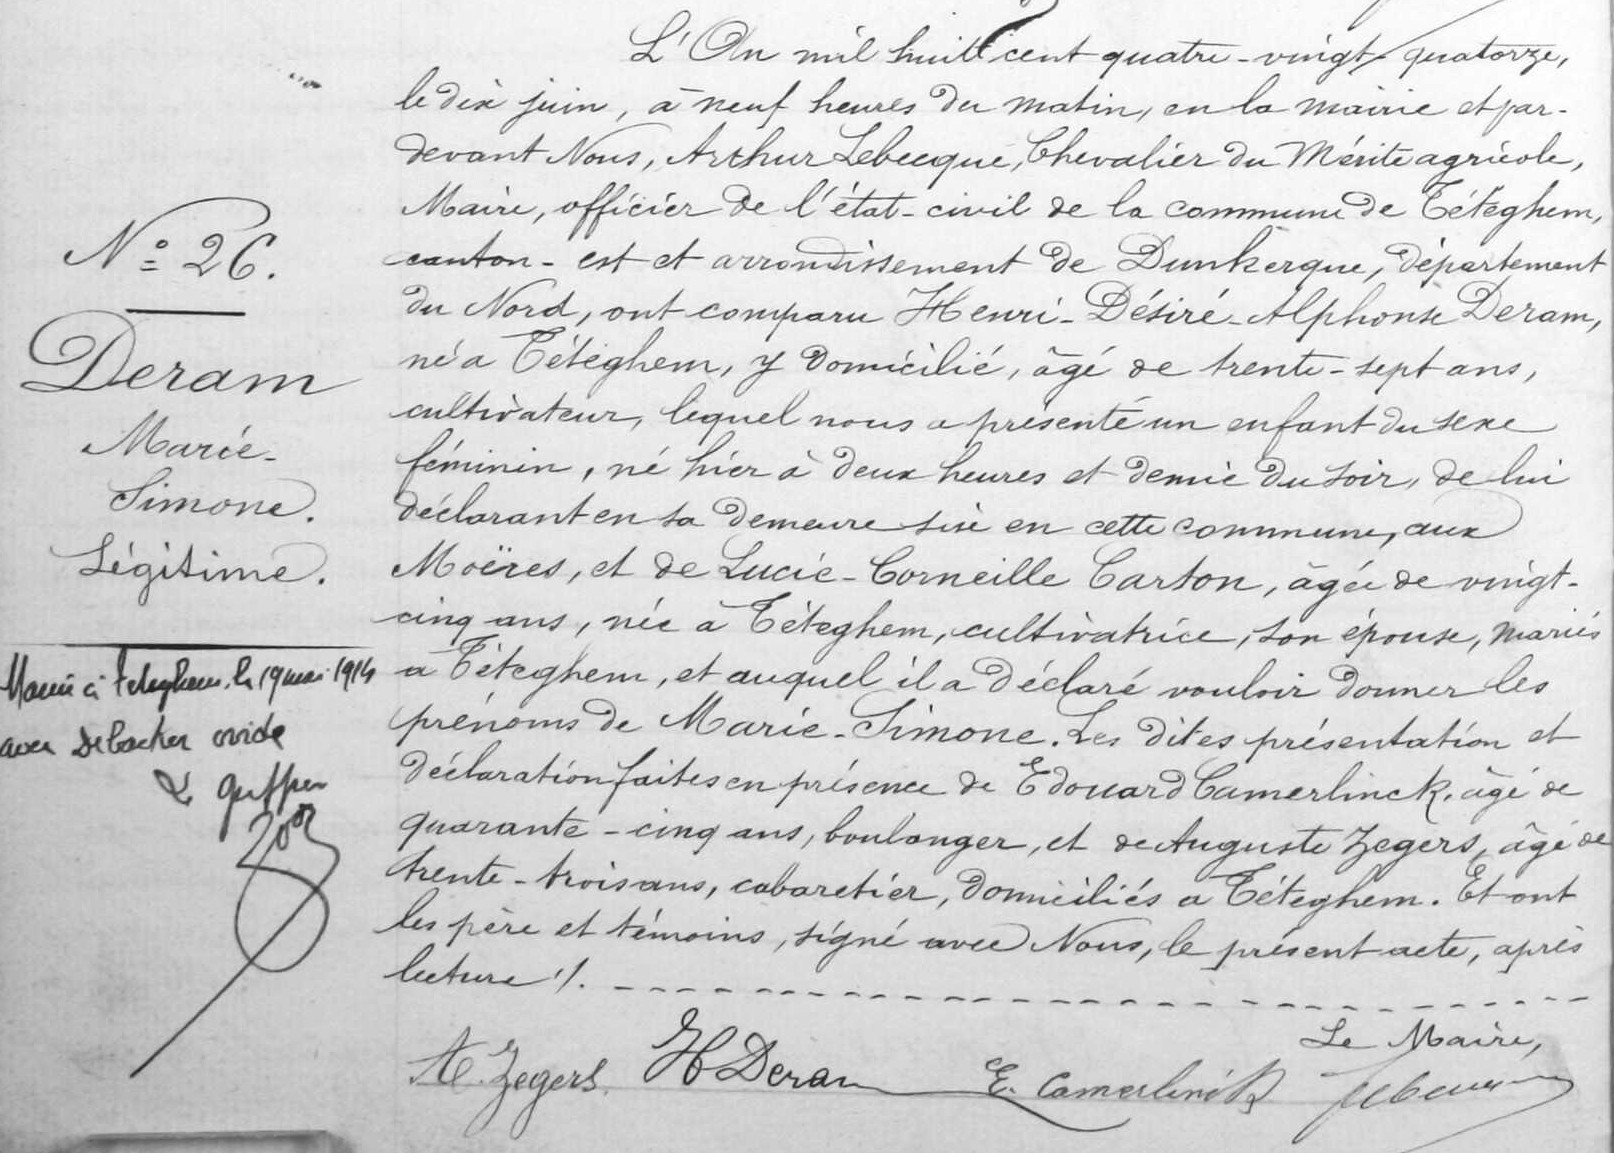 N° 26.
Deram
Marie-
Simone.
Légitime.
Marié à Téteghem, le 19 mai 1914
avec Debacker ovide
L'An mil huit cent quatre-vingt quatorze,
le dix juin, à neuf heures du matin, en la mairie et par-
devant Nous, Arthur Lebecque, Chevalier du Mérite agricole,
Maire, officier de l'état-civil de la commune de Téteghem,
canton-est et arrondissement de Dunkerque, département
du Nord, ont comparu Henri-Désiré-Alphonse Deram,
né à Téteghem, y domicilié, âgé de trente-sept ans,
cultivateur, lequel nous a présenté un enfant du sexe
féminin, né hier à deux heures et demie du soir, de lui
déclarant en sa demeure sise en cette commune, aux
Moëres, et de Lucie-Corneille Carton, âgée de vingt-
cinq ans, née à Téteghem, cultivatrice, son épouse, mariés
à Téteghem, et auquel il a déclaré vouloir donner les
prénoms de Marie-Simone. Les dites présentation et
déclaration faites en présence de Edouard Camerlinck, âgé de
quarante-cinq ans, boulanger, et de Auguste Zegers, âgé de
trente-trois ans, cabaretier, domiciliés à Téteghem. Et ont
les père et témoins, signé avec Nous, le présent acte, après
lecture ./.
Le Maire,
A. Zegers. H Deram E. Camerlinck